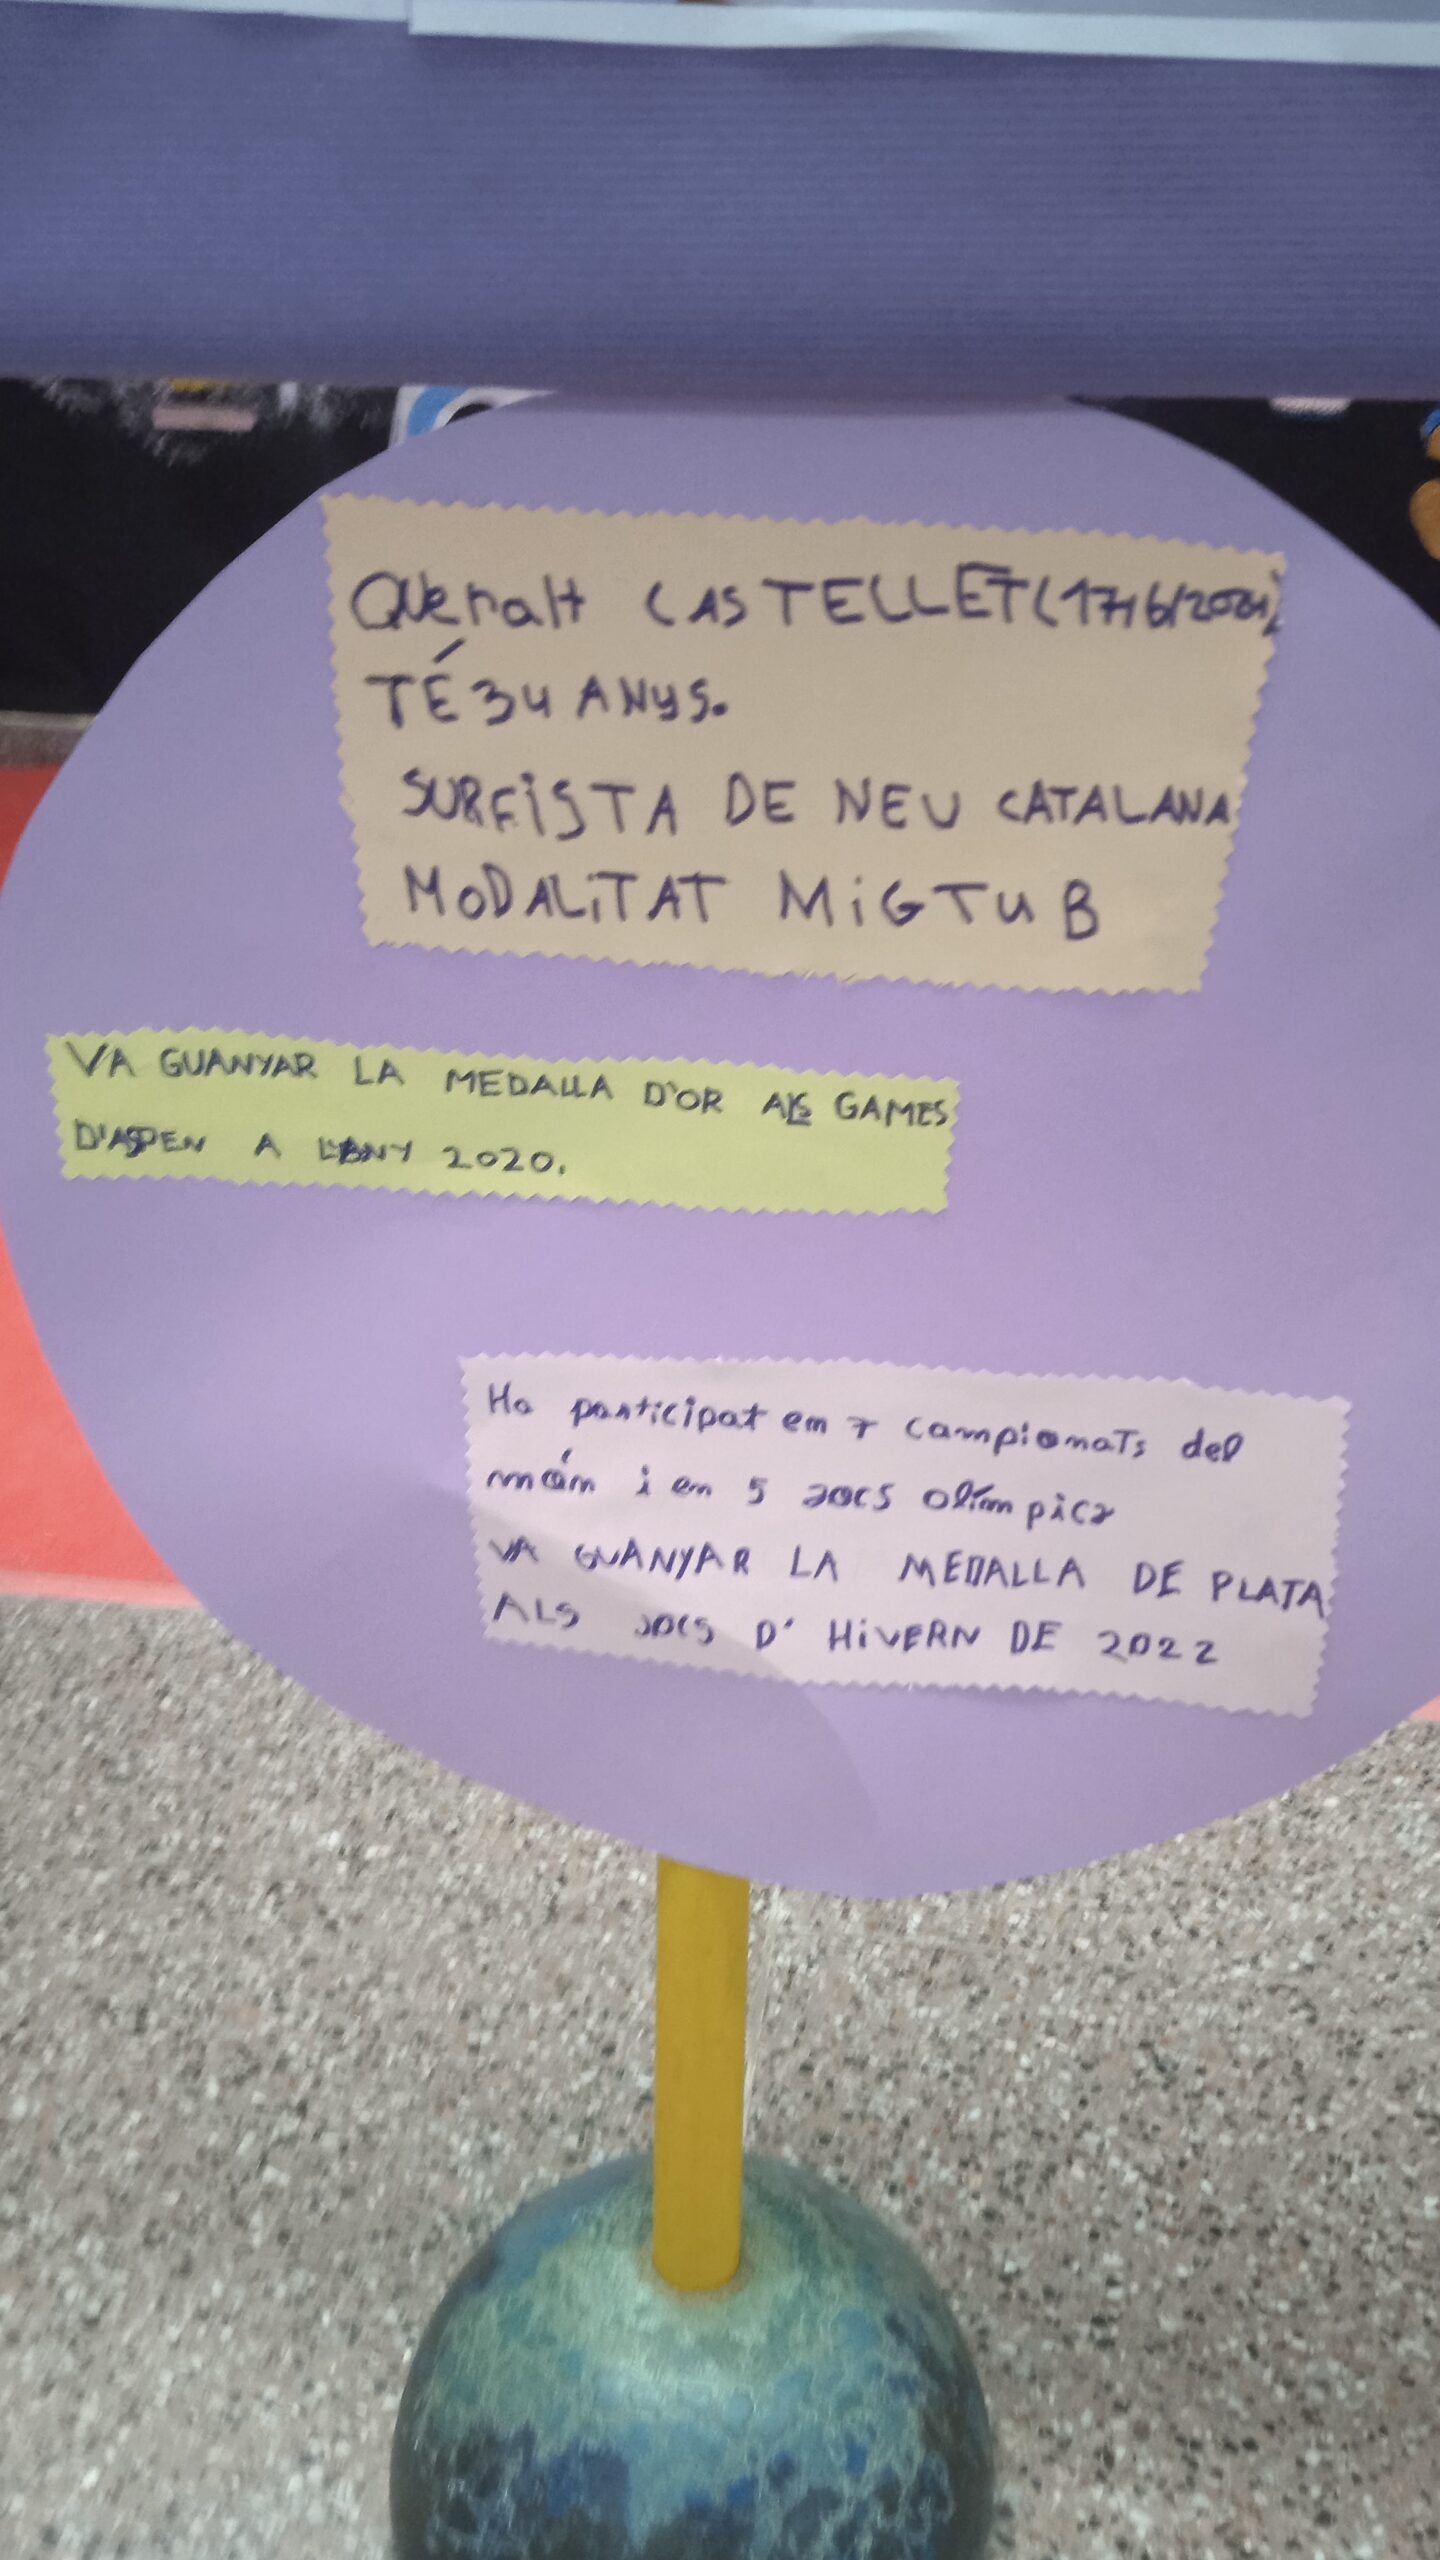 Queralt CASTELLET (17/6/2021)
TÉ 34 ANYS.
SURFiSTA DE NEU CATALANA
MODALiTAT MiGTUB
VA GUANYAR LA MEDALLA D'OR ALS GAMES
D'ASPEN A L'ANY 2020.
Ha participat em 7 campionats del
món i en 5 Jocs olímpics
VA GUANYAR LA MEDALLA DE PLATA
ALS JOCS D'HiVERN DE 2022